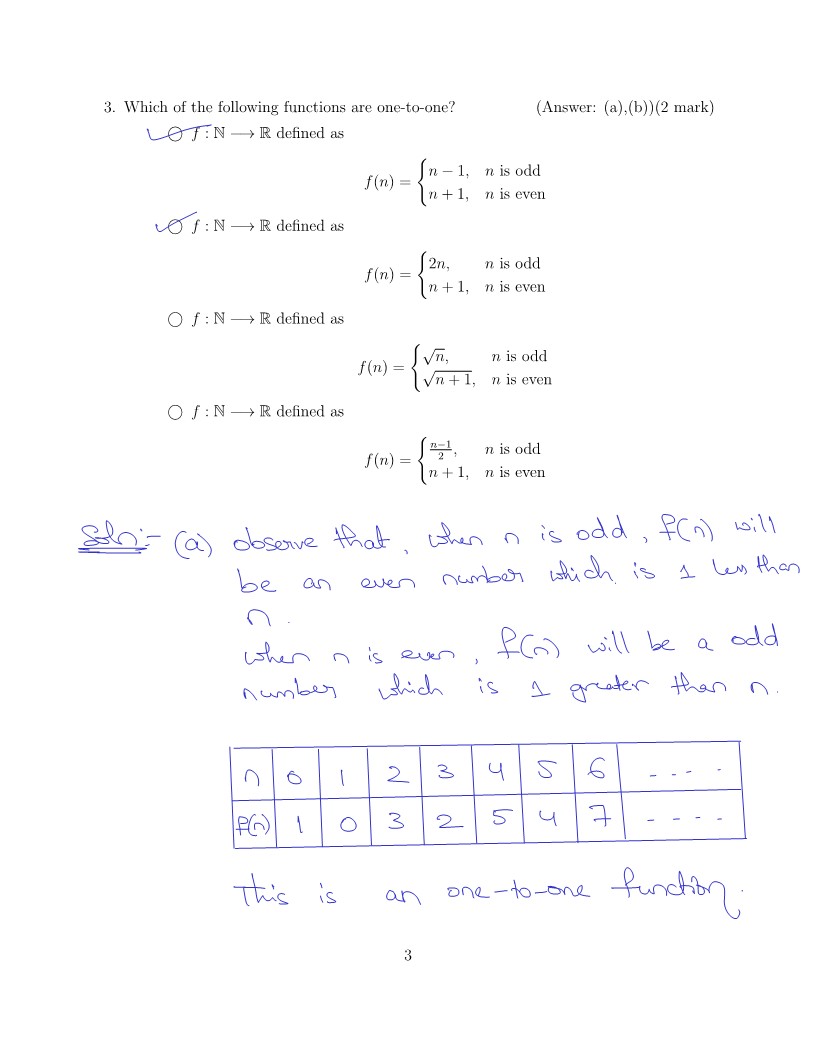 3. Which of the following functions are one-to-one? (Answer: (a),(b))(2 mark)
f : ℕ ⟶ ℝ defined as
f(n) = { n − 1, n is odd
n + 1, n is even
f : ℕ ⟶ ℝ defined as
f(n) = { 2n, n is odd
n + 1, n is even
f : ℕ ⟶ ℝ defined as
f(n) = { √n, n is odd
√(n + 1), n is even
f : ℕ ⟶ ℝ defined as
f(n) = { (n−1)/2, n is odd
n + 1, n is even
Soln:- (a) observe that, when n is odd, f(n) will
be an even number which is 1 less than
n.
when n is even, f(n) will be a odd
number which is 1 greater than n.
n 0 1 2 3 4 5 6 - - - -
f(n) 1 0 3 2 5 4 7 - - - -
This is an one-to-one function.
3